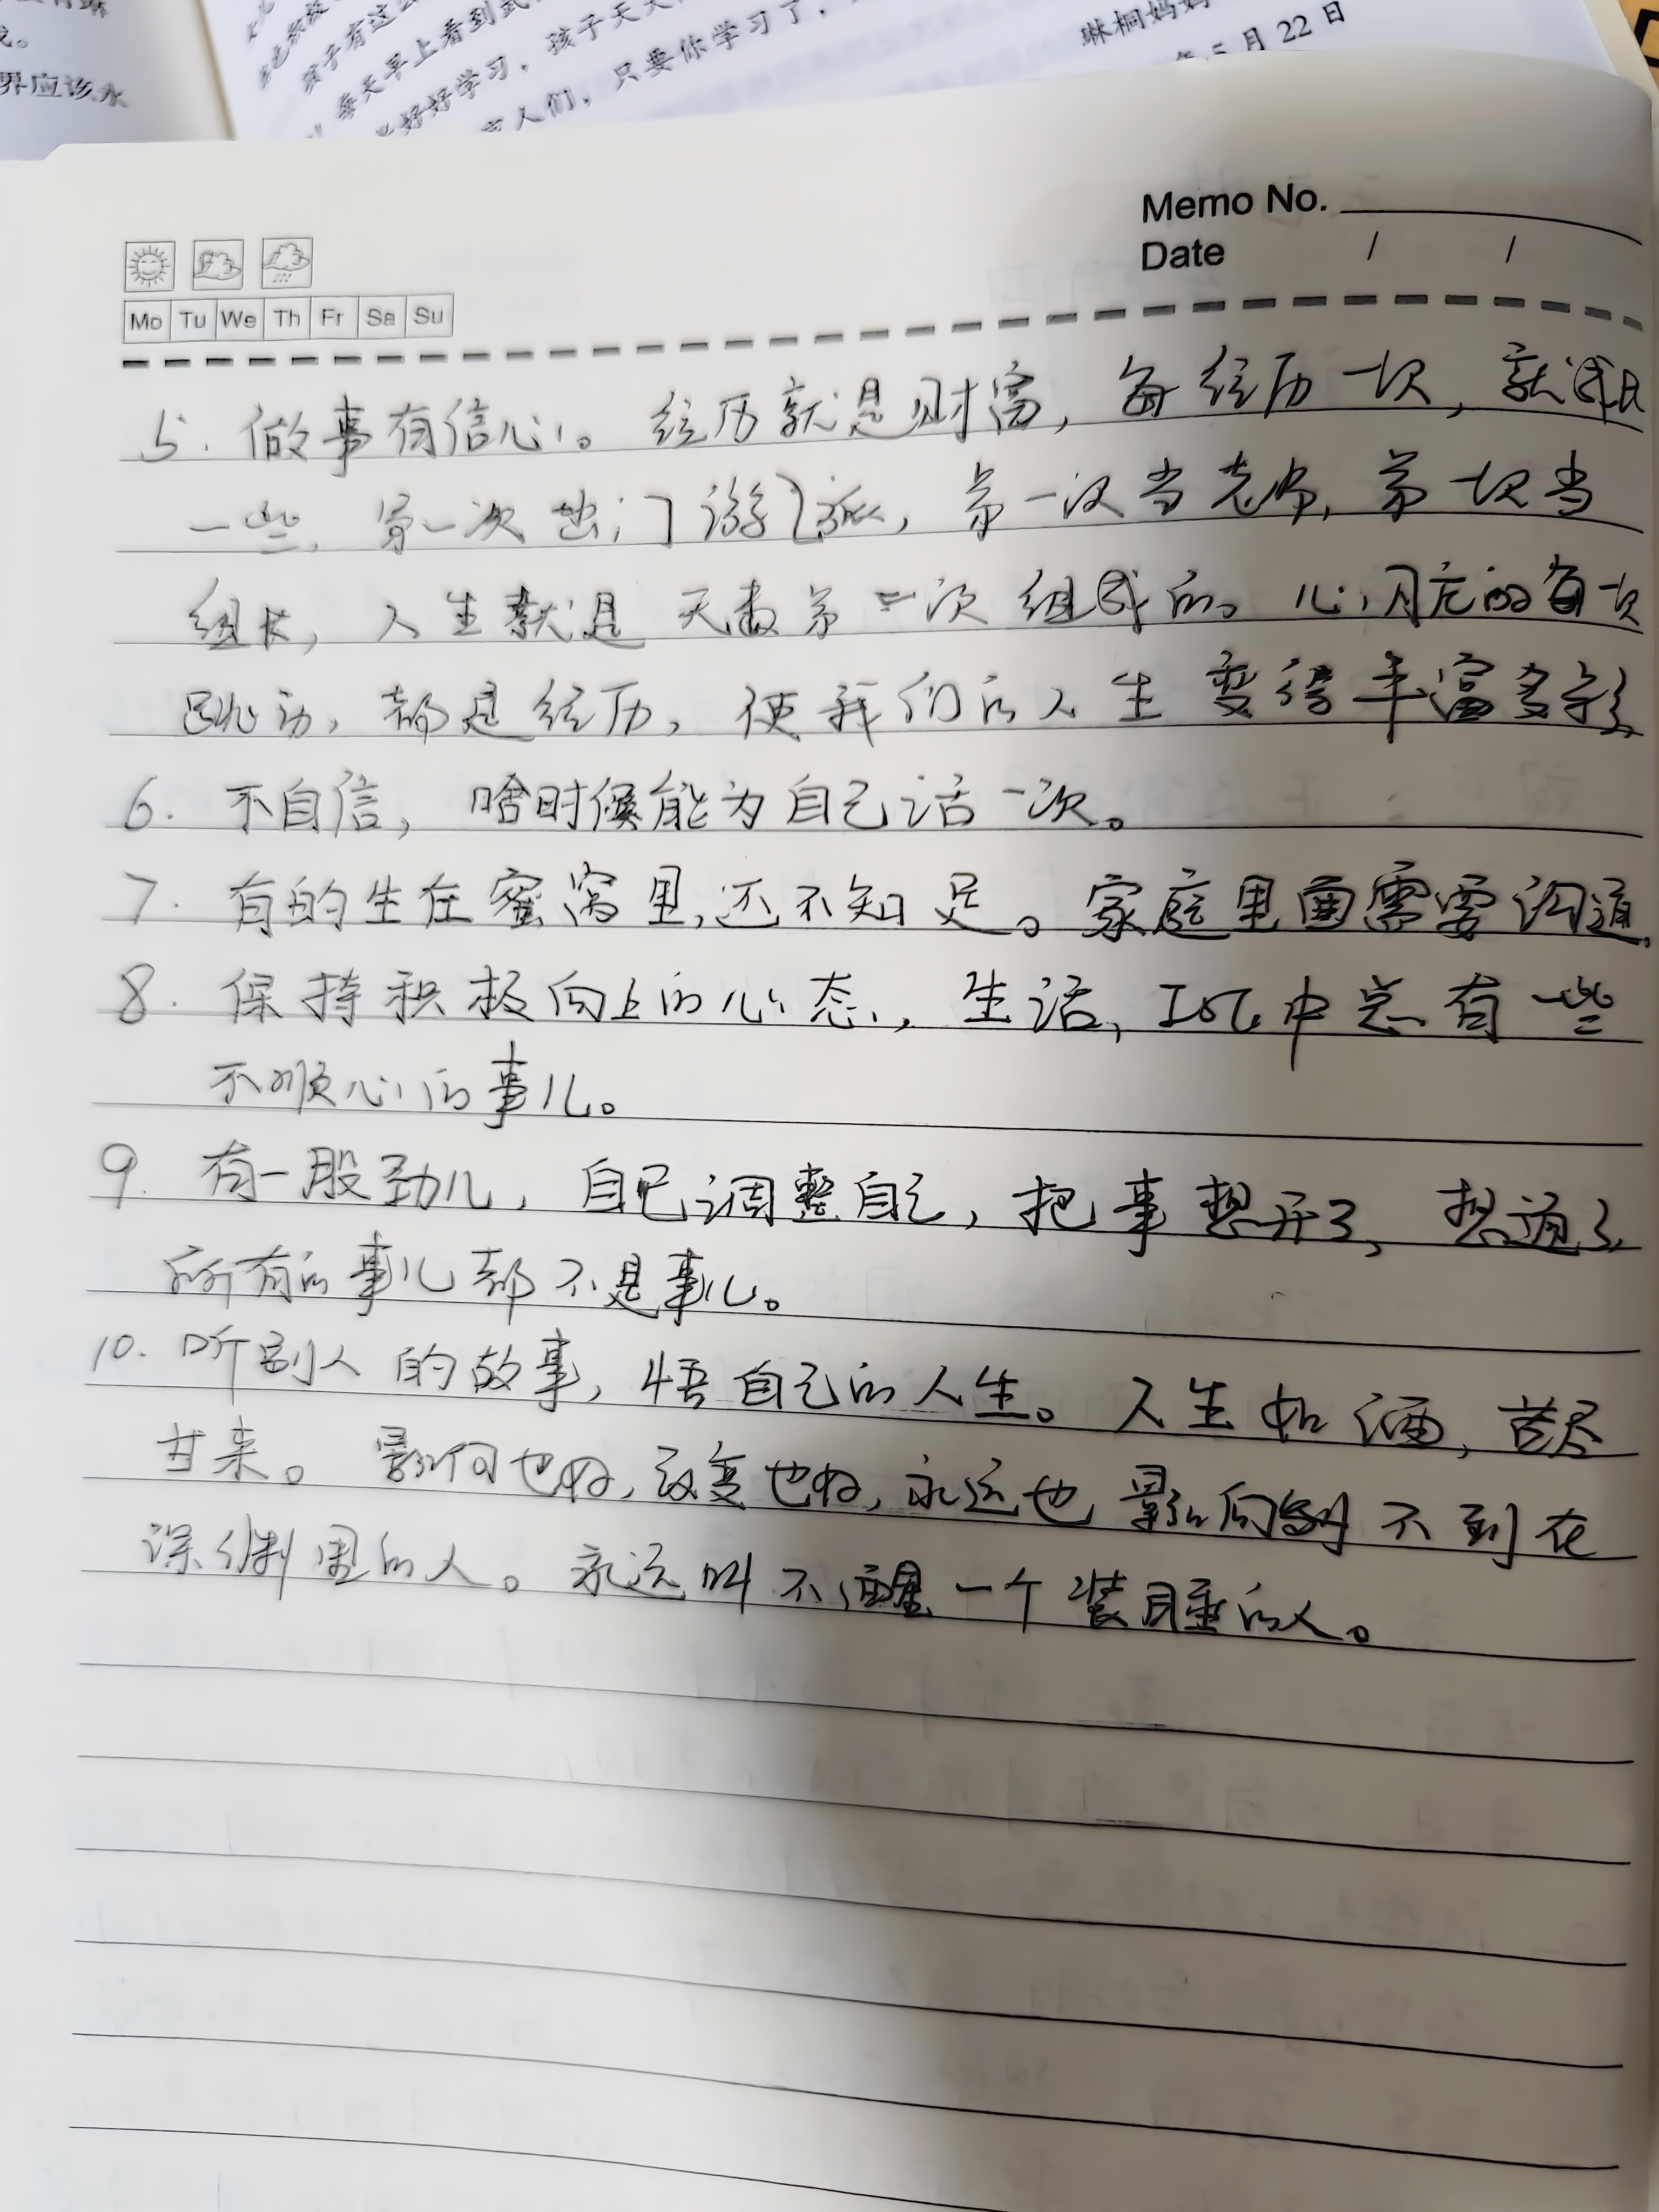 界应该永
每天早上看到
好好学习，孩子天天
人们，只要你学习了，
琳桐妈妈
年5月22日
Memo No.
Date / /
Mo Tu We Th Fr Sa Su
5. 做事有信心。经历就是财富，每经历一次，就成
一些，第一次出门游，第一次当老师，第一次当
组长，人生就是无数第一次组成的。心房的每一次
跳动，都是经历，使我们的人生变得丰富多彩
6. 不自信，啥时候能为自己活一次。
7. 有的生在蜜窝里，还不知足。家庭里面需要沟通。
8. 保持积极向上的心态，生活，工作中总有一些
不顺心的事儿。
9. 有一股劲儿，自己调整自己，把事想开了，想通了
所有的事儿都不是事儿。
10. 听别人的故事，悟自己的人生。人生如酒，苦尽
甘来。影响也好，改变也好，永远也影响不到在
深渊里的人。永远叫不醒一个装睡的人。